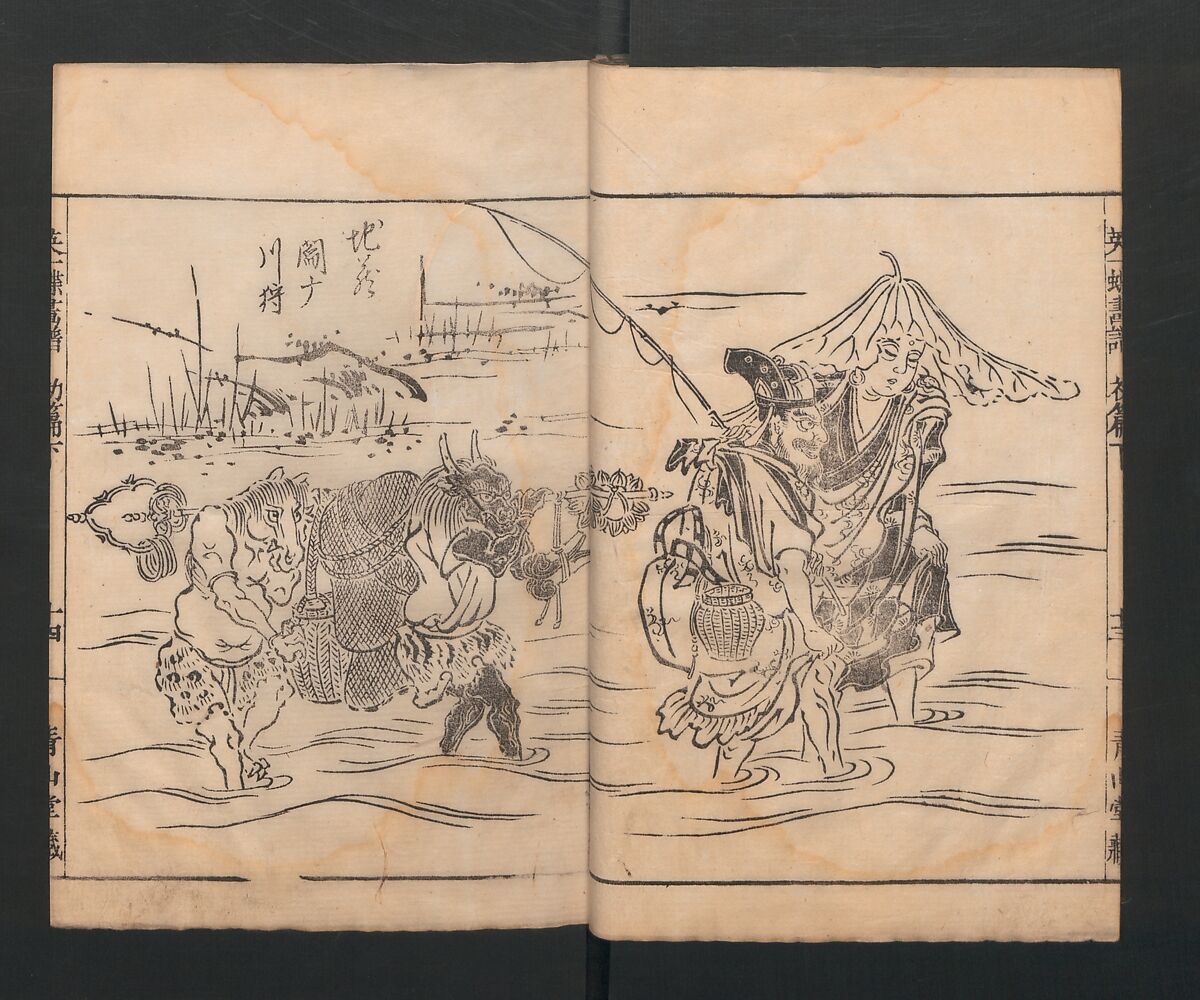 英一蝶畫譜 初篇下 十三 青山堂藏
地蔵
閻广
川狩
英一蝶畫譜 初篇下 十四 青山堂藏